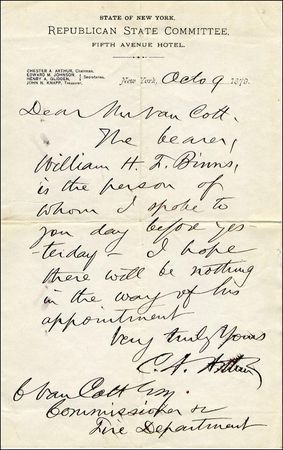 STATE OF NEW YORK.
REPUBLICAN STATE COMMITTEE.
FIFTH AVENUE HOTEL.
CHESTER A. ARTHUR, Chairman.
EDWARD M. JOHNSON,
HENRY A. GLIDDEN, Secretaries.
JOHN N. KNAPP, Treasurer.
New York, Octo 9 1879.
Dear Mr Van Cott.
The bearer,
William H. T. Binns,
is the person of
whom I spoke to
you day before yes-
terday - I hope
there will be nothing
in the way of his
appointment
Very truly Yours
C. A. Arthur
C Van Cott Esq
Commissioner &c
Fire Department